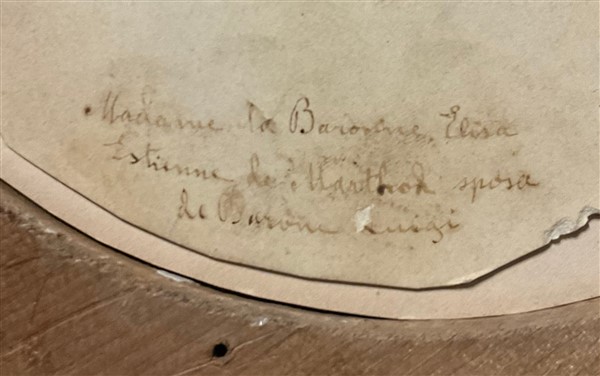 Madame la Baronne Elisa
Estienne de Marthod sposa
de Barone Luigi